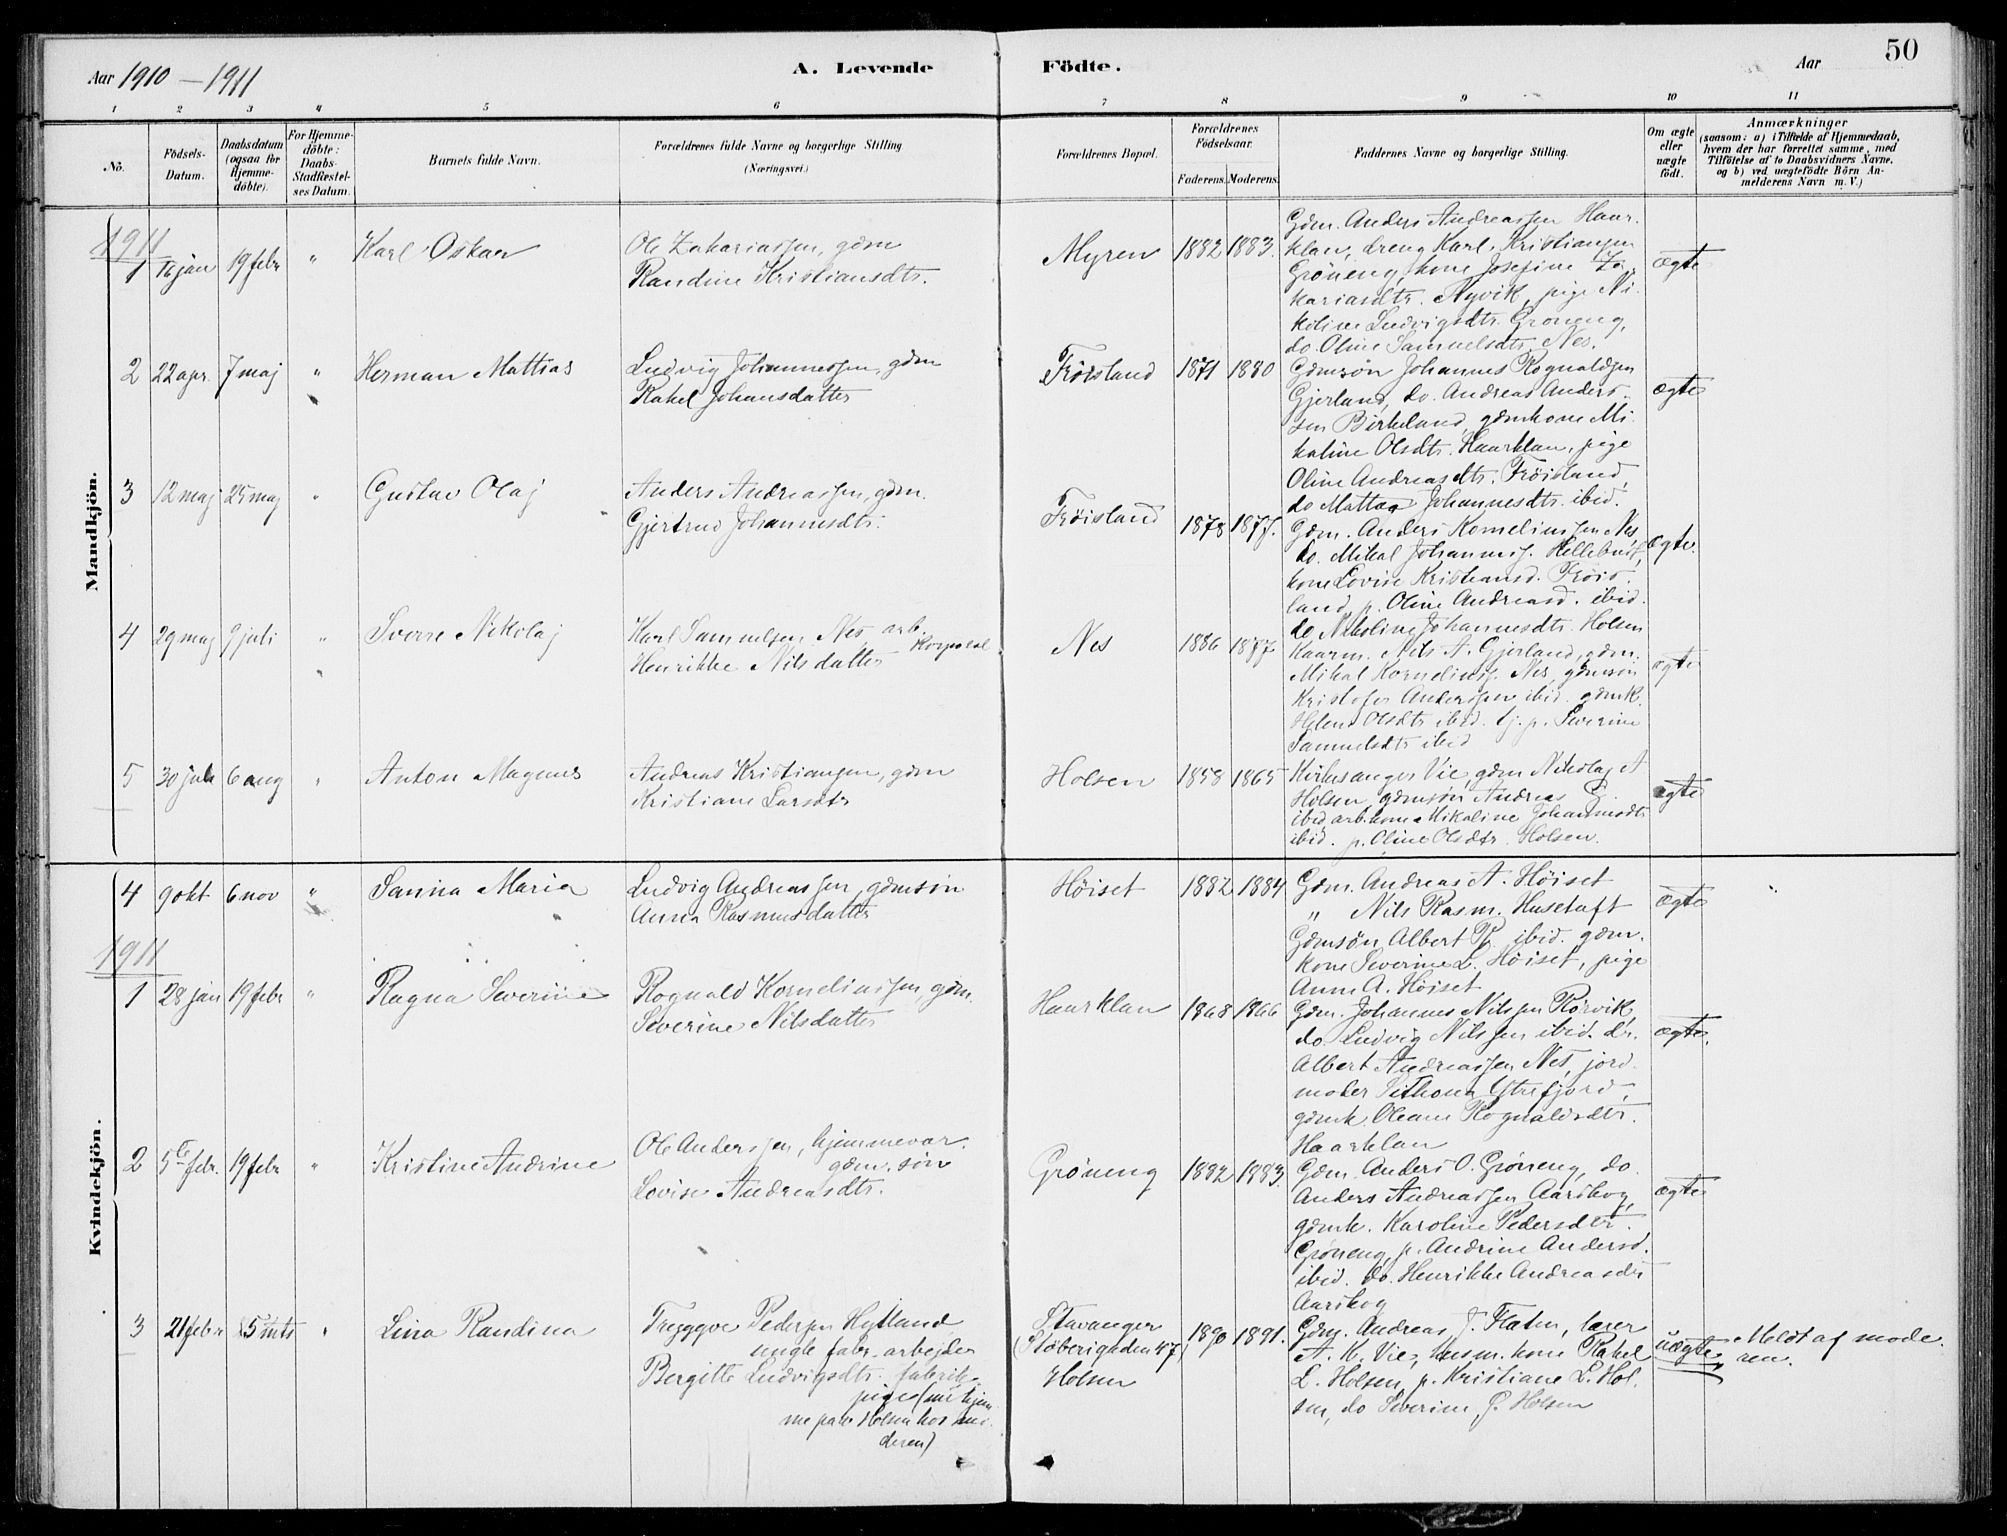 50
Aar 1910 – 1911
A. Levende Födte.
Aar
1 2 3 4 5 6 7 8 9 10 11
No.
Födsels-Datum.
Daabsdatum (ogsaa for Hjemme-döbte).
For Hjemme-döbte: Daabs-Stadfæstel-ses Datum.
Barnets fulde Navn.
Forældrenes fulde Navne og borgerlige Stilling
(Næringsvei.)
Forældrenes Bopæl.
Forældrenes Födselsaar.
Faderens. Moderens.
Faddernes Navne og borgerlige Stilling.
Om ægte eller uægte födt.
Anmærkninger
(saasom: a) i Tilfælde af Hjemmedaab,
hvem der har forrettet samme, med
Tilföielse af to Daabsvidners Navne,
og b) ved uægtefödte Börn An-
melderens Navn m. V.)
Mandkjön.
1911
1 16 jan 19 febr " Karl Oskar
Ole Zakariassen, gdm
Randine Kristiansdtr.
Myren 1882 1883.
Gdm. Anders Andreassen Haar-
klau, dreng Karl Kristiansen
Grøneng, kone Josefine Za-
kariasdtr. Nyvik, pige Ni-
koline Ludvigsdtr. Grøneng,
do. Oline Samuelsdtr. Nes.
ægte
2 22 apr. 7 maj " Herman Mattias
Ludvig Johannessen, gdm
Rakel Johansdatter
Frøisland 1871 1880
Gdmsøn Johannes Rognaldsen
Gjerland, do. Andreas Anders-
sen Birkeland, gdmkone Mi-
kaline Olsdtr. Haarklau, pige
Oline Andreasdtr. Frøisland,
do Mattea Johannesdtr. ibid.
ægte
3 12 maj 25 maj " Gustav Olaj
Anders Andreassen, gdm.
Gjertrud Johannesdtr.
Frøisland 1878 1877.
Gdm. Anders Korneliussen Nes,
do. Mikal Johanness. Hellebust,
kone Lovise Kristiansd. Frøis-
land, p. Oline Andreasd. ibid.
do Nikoline Johannesdtr. Holsen
ægte.
4 29 maj 9 juli " Sverre Nikolaj
Karl Samuelsen Nes arb. Korporal
Henrikke Nilsdatter
Nes 1886 1877
Kaarm. Nils A. Gjerland, gdm.
Mikal Korneliuss. Nes, gdmsøn
Kristofer Anderssen ibid. gdmk.
Helene Olsdtr ibid. tj. p. Severine
Samuelsdtr ibid
ægte
5 30 juli 6 aug " Anton Magnus
Andreas Kristiansen, gdm
Kristiane Larsdtr
Holsen 1858 1865
Kirkesanger Vie, gdm Nikolaj A
Holsen, gdmsøn Andreas E.
ibid arb.kone Mikaline Johannesdtr
ibid. p. Oline Olsdtr. Holsen.
ægte
Kvindekjön.
4 9 okt 6 nov " Sanna Maria
Ludvig Andreassen, gdmsøn
Anna Rasmusdatter
Høiset 1882 1884
Gdm. Andreas A. Høiset
" Nils Rasm. Husetuft
Gdmsøn Albert R. ibid. gdm.
kone Severine L. Høiset, pige
Anne A. Høiset
ægte
1911
1 28 jan 19 febr " Ragna Severine
Rognald Korneliussen, gdm.
Severine Nilsdatter
Haarklau 1868 1866
Gdm. Johannes Nilssen Rørvik,
do. Ludvig Nilssen ibid. dr.
Albert Andreassen Nes, jord-
moder Sithona Ytrefjord,
gdmk. Oleane Rognaldsdtr.
Haarklau
ægte.
2 5te febr. 19 febr " Kristine Andrine
Ole Anderssen, hjemmevær. gdm. søn
Lovise Andreasdtr.
Grøneng 1882 1883.
Gdm. Anders O. Grøneng, do.
Anders Andreassen Aarskog,
gdmk. Karoline Pedersdtr.
Grøneng, p. Andrine Andersd.
ibid. do. Henrikke Andreasdtr
Aarskog
ægte
3 21 febr 5 mts " Lina Randina
Tryggve Pedersen Hytland
ungk fabr. arbejder
Bergitte Ludvigsdtr. fabrik-
pige (nu hjem-
me paa Holsen hos mo-
deren)
Stavanger
(Støberigaden 47)
Holsen
1890 1891.
Gdm. Andreas J. Flaten, lærer
A. K. Vie, husm. kone Rakel
L. Holsen, p. Kristiane L. Hol-
sen, do Severine J. Holsen
uægte
Meldt af mode-
ren.